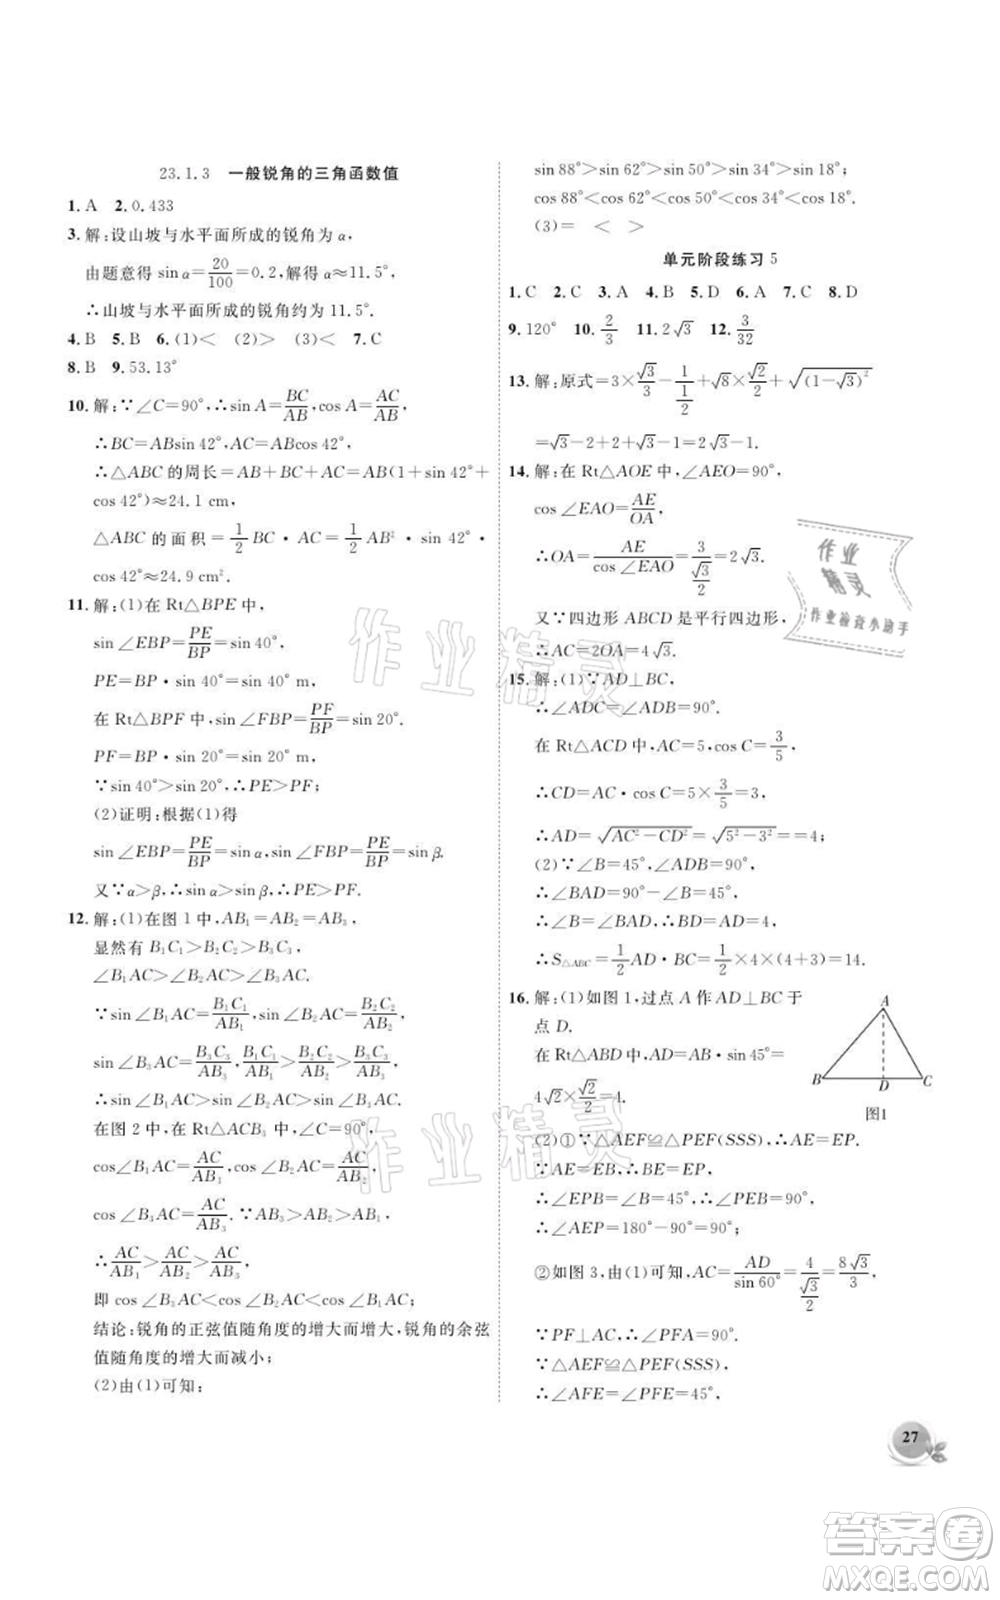 23.1.3 一般锐角的三角函数值
1. A 2. 0.433
3. 解:设山坡与水平面所成的锐角为 α,
由题意得 sin α=20/100=0.2,解得 α≈11.5°.
∴山坡与水平面所成的锐角约为 11.5°.
4. B 5. B 6. (1)< (2)> (3)< 7. C
8. B 9. 53.13°
10. 解:∵∠C=90°,∴sin A=BC/AB,cos A=AC/AB,
∴BC=ABsin 42°,AC=ABcos 42°,
∴△ABC 的周长=AB+BC+AC=AB(1+sin 42°+
cos 42°)≈24.1 cm,
△ABC 的面积=1/2 BC·AC=1/2 AB²·sin 42°·
cos 42°≈24.9 cm².
11. 解:(1)在 Rt△BPE 中,
sin∠EBP=PE/BP=sin 40°,
PE=BP·sin 40°=sin 40° m,
在 Rt△BPF 中,sin∠FBP=PF/BP=sin 20°.
PF=BP·sin 20°=sin 20° m,
∵sin 40°>sin 20°,∴PE>PF;
(2)证明:根据(1)得
sin∠EBP=PE/BP=sin α,sin∠FBP=PF/BP=sin β,
又∵α>β,∴sin α>sin β,∴PE>PF.
12. 解:(1)在图 1 中,AB₁=AB₂=AB₃,
显然有 B₁C₁>B₂C₂>B₃C₃,
∠B₁AC>∠B₂AC>∠B₃AC.
∵sin∠B₁AC=B₁C₁/AB₁,sin∠B₂AC=B₂C₂/AB₂,
sin∠B₃AC=B₃C₃/AB₃,B₁C₁/AB₁>B₂C₂/AB₂>B₃C₃/AB₃,
∴sin∠B₁AC>sin∠B₂AC>sin∠B₃AC.
在图 2 中,在 Rt△ACB₃ 中,∠C=90°,
cos∠B₁AC=AC/AB₁,cos∠B₂AC=AC/AB₂,
cos∠B₃AC=AC/AB₃.∵AB₃>AB₂>AB₁,
∴AC/AB₁>AC/AB₂>AC/AB₃,
即 cos∠B₃AC<cos∠B₂AC<cos∠B₁AC;
结论:锐角的正弦值随角度的增大而增大,锐角的余弦
值随角度的增大而减小;
(2)由(1)可知:
sin 88°>sin 62°>sin 50°>sin 34°>sin 18°;
cos 88°<cos 62°<cos 50°<cos 34°<cos 18°.
(3)= < >
单元阶段练习 5
1. C 2. C 3. A 4. B 5. D 6. A 7. C 8. D
9. 120° 10. 2/3 11. 2√3 12. 3/32
13. 解:原式=3×√3/3-1/(1/2)+√8×√2/2+√(1-√3)²
=√3-2+2+√3-1=2√3-1.
14. 解:在 Rt△AOE 中,∠AEO=90°,
cos∠EAO=AE/OA,
∴OA=AE/cos∠EAO=3/(√3/2)=2√3.
又∵四边形 ABCD 是平行四边形,
∴AC=2OA=4√3.
15. 解:(1)∵AD⊥BC,
∴∠ADC=∠ADB=90°.
在 Rt△ACD 中,AC=5,cos C=3/5,
∴CD=AC·cos C=5×3/5=3,
∴AD=√(AC²-CD²)=√(5²-3²)==4;
(2)∵∠B=45°,∠ADB=90°,
∴∠BAD=90°-∠B=45°,
∴∠B=∠BAD,∴BD=AD=4,
∴S△ABC=1/2 AD·BC=1/2×4×(4+3)=14.
16. 解:(1)如图 1,过点 A 作 AD⊥BC 于
点 D.
在 Rt△ABD 中,AD=AB·sin 45°=
4√2×√2/2=4.
A
B
D
C
图1
(2)①∵△AEF≌△PEF(SSS),∴AE=EP.
∵AE=EB,∴BE=EP,
∴∠EPB=∠B=45°,∴∠PEB=90°,
∴∠AEP=180°-90°=90°;
②如图 3,由(1)可知,AC=AD/sin 60°=4/(√3/2)=8√3/3,
∵PF⊥AC,∴∠PFA=90°.
∵△AEF≌△PEF(SSS),
∴∠AFE=∠PFE=45°,
27
作业精灵
作业精灵
作业
精灵
作业检查小助手
答案圈
MXQE.COM